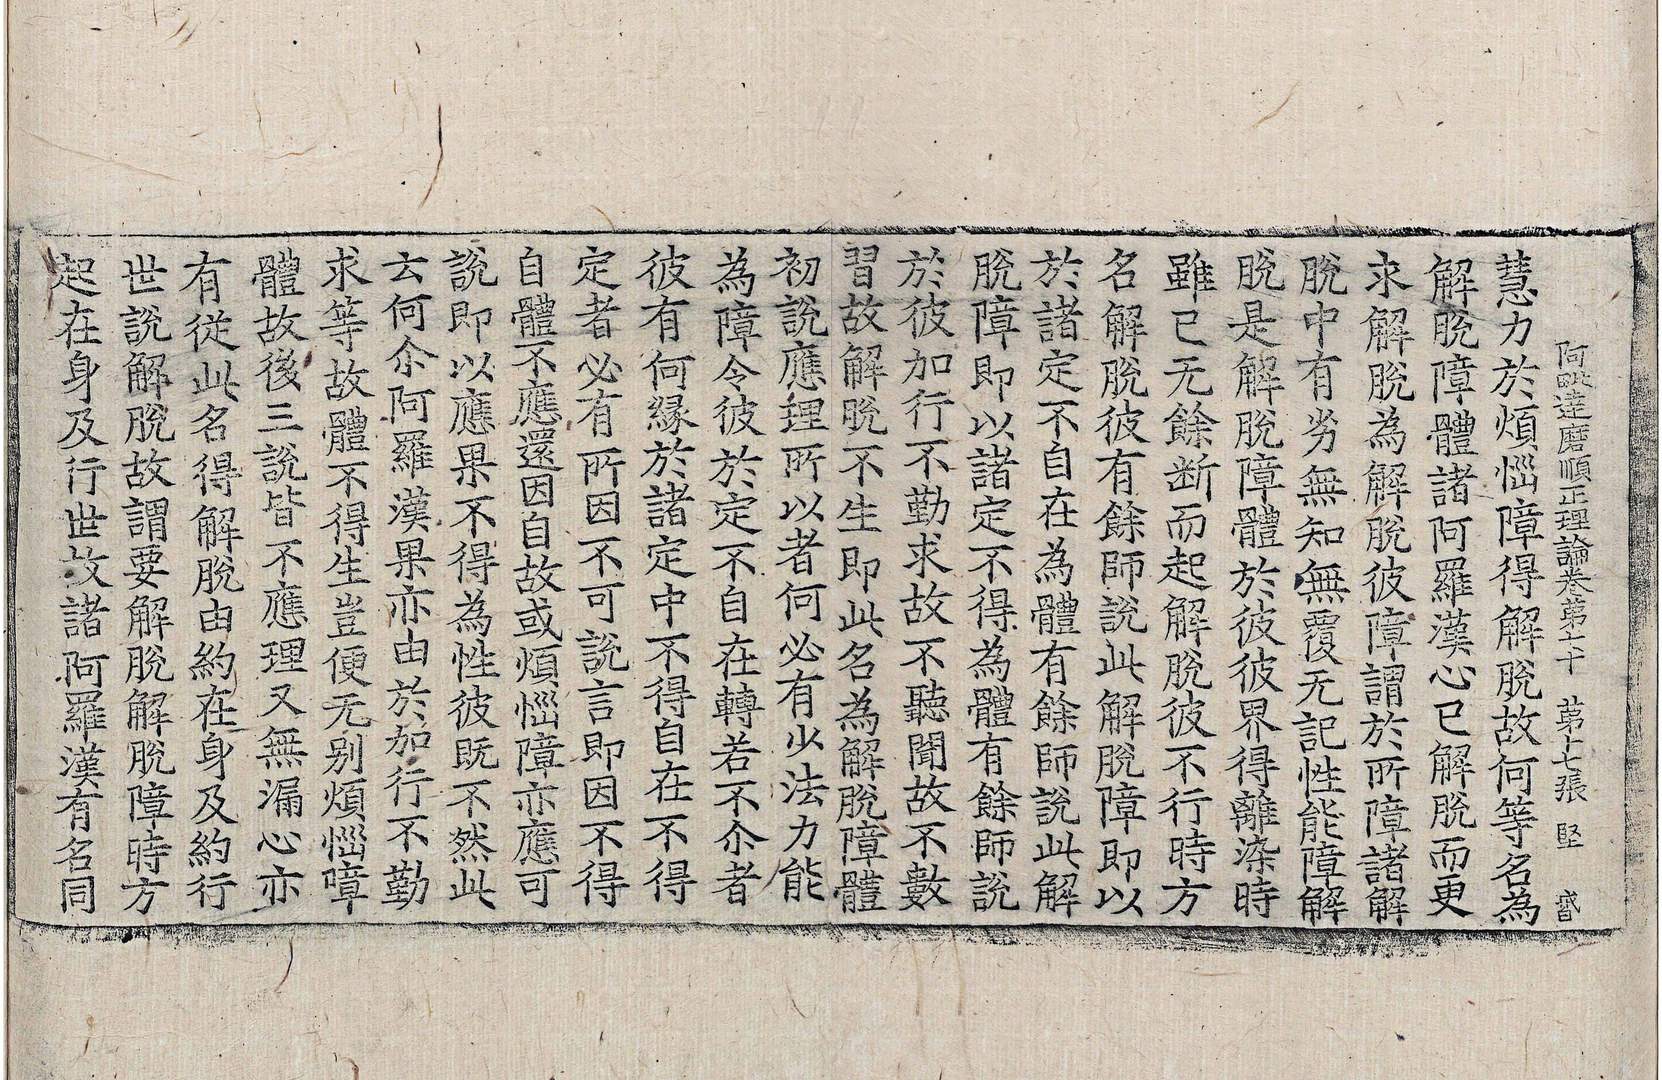 阿毗達磨順正理論卷第七十 第十七張 堅
慧力於煩惱障得解脫故何等名為
解脫障體諸阿羅漢心已解脫而更
求解脫為解脫彼障謂於所障諸解
脫中有劣無知無覆无記性能障解
脫是解脫障體於彼彼界得離染時
雖已无餘断而起解脫彼不行時方
名解脫彼有餘師說此解脫障即以
於諸定不自在為體有餘師說此解
脫障即以諸定不得為體有餘師說
於彼加行不勤求故不聽聞故不數
習故解脫不生即此名為解脫障體
初說應理所以者何必有少法力能
為障令彼於定不自在轉若不尒者
彼有何緣於諸定中不得自在不得
定者必有所因不可說言即因不得
自體不應還因自故或煩惱障亦應可
說即以應果不得為性彼既不然此
云何尒阿羅漢果亦由於加行不勤
求等故體不得生豈便无別煩惱障
體故後三說皆不應理又無漏心亦
有從此名得解脫由約在身及約行
世說解脫故謂要解脫解脫障時方
起在身及行世故諸阿羅漢有名同